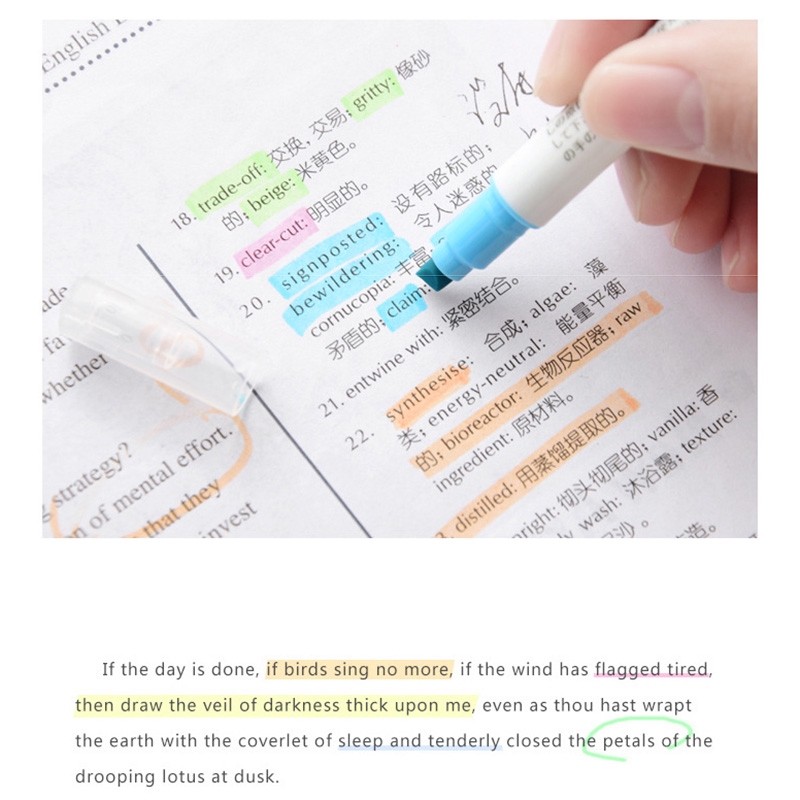 English
18. trade-off: 交换, 交易; gritty: 像砂
的; beige: 米黄色。
19. clear-cut: 明显的。
20. signposted: 设有路标的;
bewildering: 令人迷惑的
cornucopia: 丰富
矛盾的; claim:
21. entwine with: 紧密结合。
22. synthesise: 合成; algae: 藻
类; energy-neutral: 能量平衡
的; bioreactor: 生物反应器; raw
ingredient: 原材料。
distilled: 用蒸馏提取的。
彻头彻尾的; vanilla: 香
wash: 沐浴露; texture:
whether
strategy?
of mental effort.
that they
invest
If the day is done, if birds sing no more, if the wind has flagged tired,
then draw the veil of darkness thick upon me, even as thou hast wrapt
the earth with the coverlet of sleep and tenderly closed the petals of the
drooping lotus at dusk.